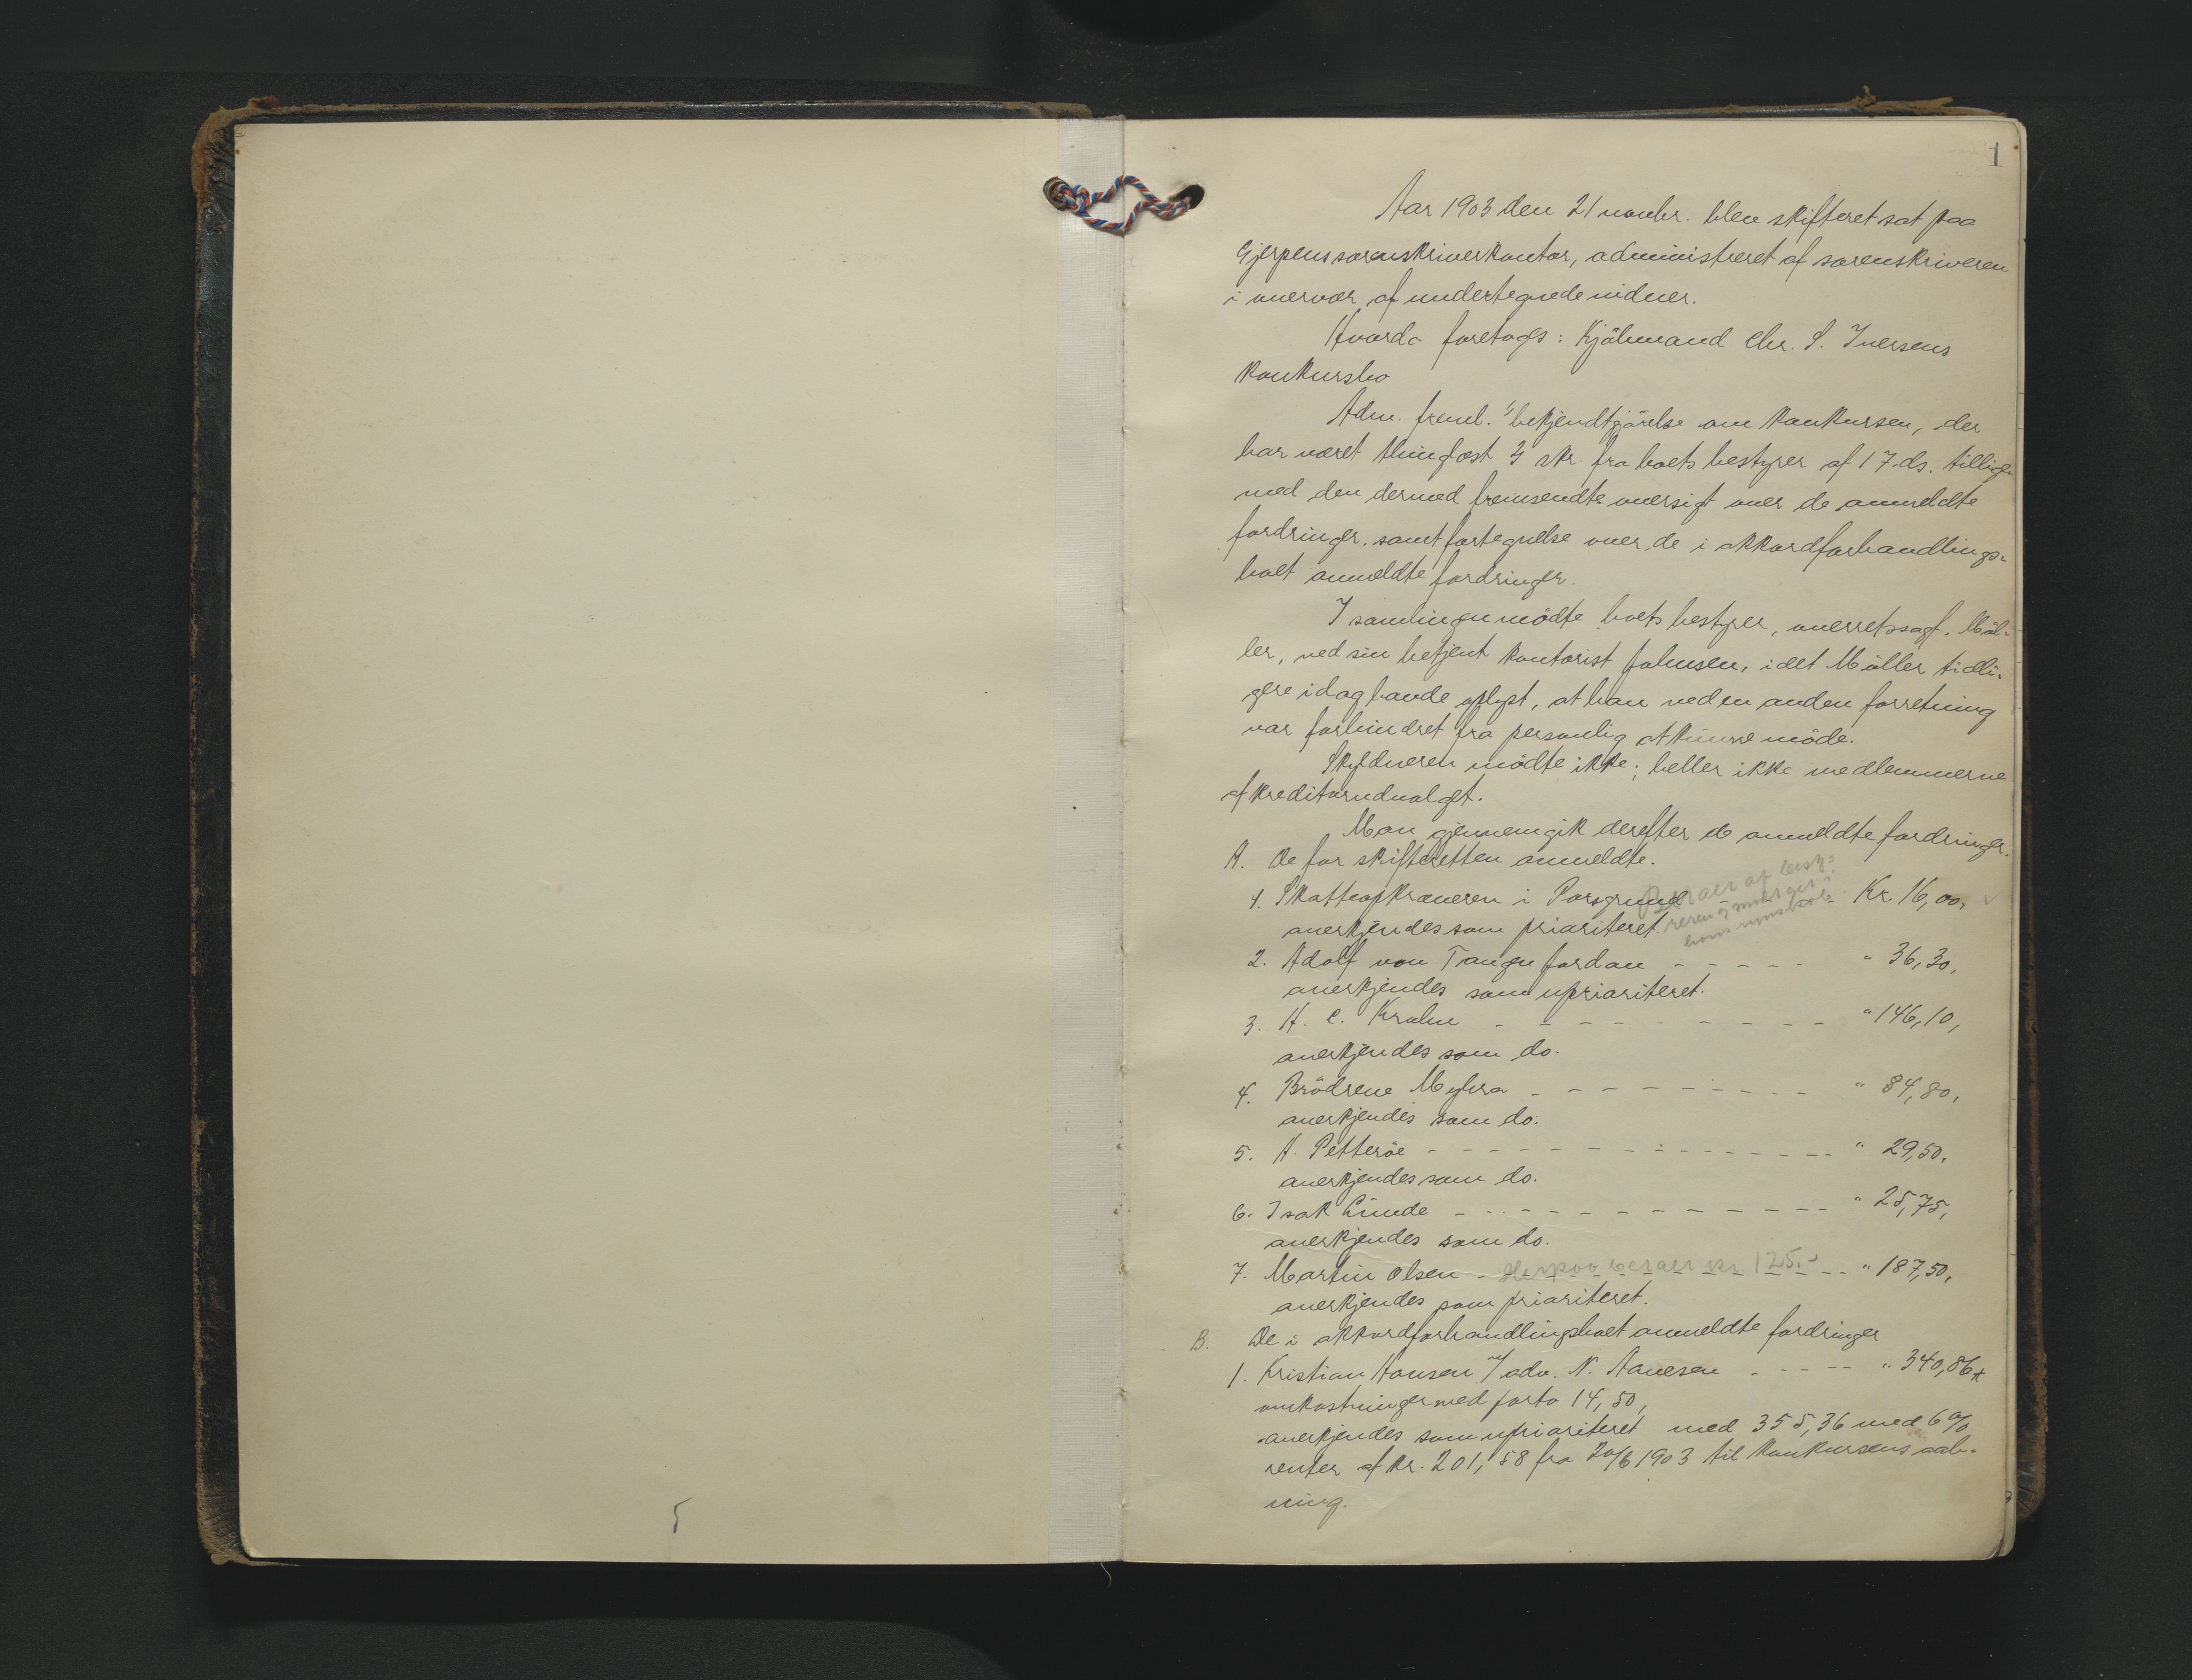 1
Aar 1903 den 21 novbr. blev skifteret sat paa
Gjerpens sorenskriverkontor, administreret af sorenskriveren
i overvær af undertegnede vidner.
Hvorda foretoges: Kjøbmand Chr. S. Iversens
konkursbo
Adm. freml. 1) bekjendtgjörelse om konkursen, der
har været thinglæst 2) skr. fra boets bestyrer af 17 ds. tillige
med den dermed fremsendte oversigt over de anmeldte
fordringer. samt fortegnelse over de i akkordforhandlings-
boet anmeldte fordringer.
I samlingen mödte boets bestyrer, overretssagf. Möl-
ler, ved sin betjent kontorist Johnsen, idet Möller tidli-
gere idag havde oplyst, at han ved en anden forretning
var forhindret fra personlig at kunne möde.
Skyldneren mödte ikke; heller ikke medlemmerne
af kreditorudvalget.
Man gjennemgik derefter de anmeldte fordringer.
A. De for skifteretten anmeldte.
1. Skatteopkræveren i Porsgrund Kr. 16,00,
anerkjendes som prioriteret.
2. Adolf von Tangen Jordan - - - - - " 36,30,
anerkjendes som uprioriteret.
3. H. C. Krohn - - - - - - - - - - " 146,10,
anerkjendes som do.
4. Brödrene Myhra - - - - - - - - - " 84,80,
anerkjendes som do.
5. H. Petteröe - - - - - - - - - - - - " 29,50.
anerkjendes som do.
6. Isak Linde - - - - - - - - - - - - " 25,75,
anerkjendes som do.
7. Martin Olsen - Herpaa betales kr. 125.- - - " 187,50,
anerkjendes som prioriteret.
B. De i akkordforhandlingsboet anmeldte fordringer
1. Kristian Hansen v/ adv. N. Aanesen - - - - " 340,86 +
omkostninger med porto 14,50,
anerkjendes som uprioriteret med 355,36 med 6 %
renter af kr. 201,58 fra 20/6 1903 til konkursens aab-
ning.
5